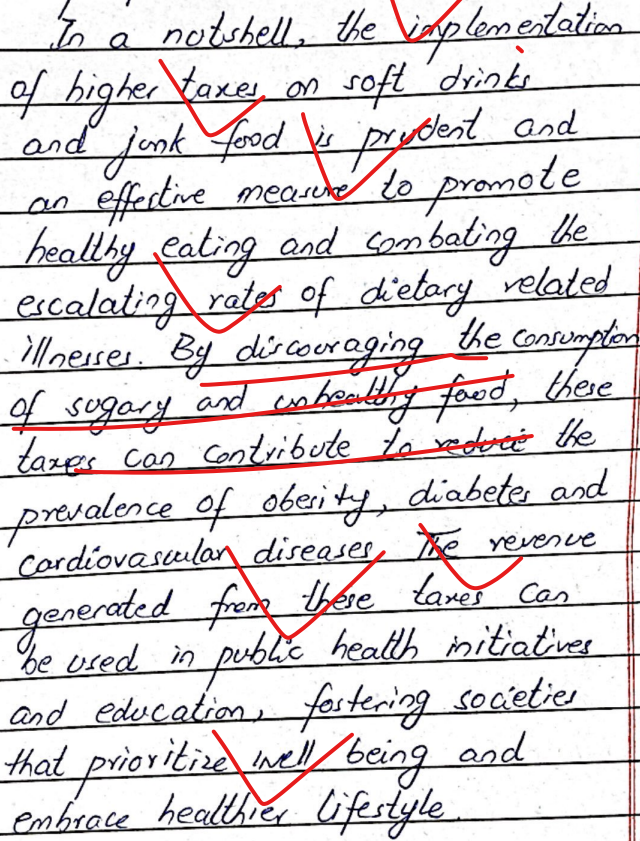 In a notshell, the implementation
of higher taxes on soft drinks
and junk food is prudent and
an effective measure to promote
healthy eating and combating the
escalating rates of dietary related
illnesses. By discouraging the consumption
of sugary and unhealthy food, these
taxes can contribute to reduce the
prevalence of obesity, diabetes and
cardiovascular diseases. The revenue
generated from these taxes can
be used in public health initiatives
and education, fostering societies
that prioritize well being and
embrace healthier lifestyle.